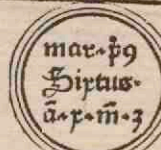 mar⁎p̄ꝰ
Sixtus⁎
ā⁎x⁎m̄⁎3